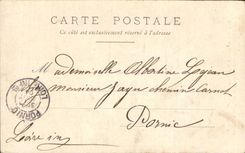 CARTE POSTALE
Ce côté est exclusivement réservé à l'adresse
Mademoiselle Albertine
Monsieur chemin Carnot
Pornic
Loire in